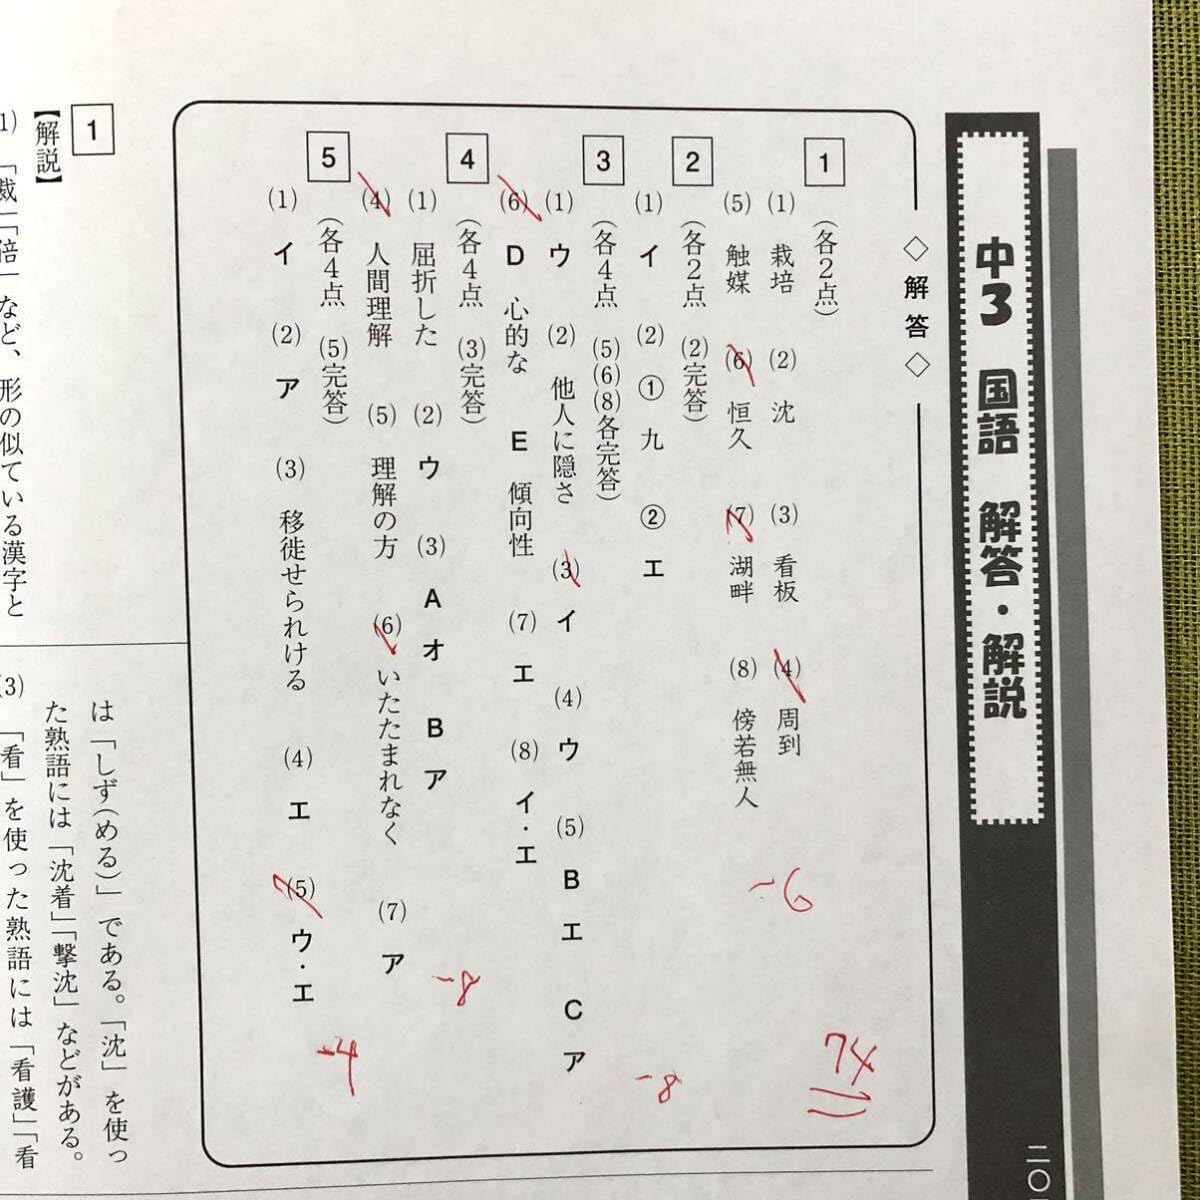 中3 国語 解答・解説
二〇
◇解答◇
1 (各2点)
(1) 栽培 (2) 沈 (3) 看板 (4) 周到
(5) 触媒 (6) 恒久 (7) 湖畔 (8) 傍若無人
-6
2 (各2点 (2)完答)
(1) イ (2) ① 九 ② エ
3 (各4点 (5)(6)(8)各完答)
(1) ウ (2) 他人に隠さ (3) イ (4) ウ (5) B エ C ア
(6) D 心的な E 傾向性 (7) エ (8) イ・エ
-8
4 (各4点 (3)完答)
(1) 屈折した (2) ウ (3) A オ B ア
(4) 人間理解 (5) 理解の方 (6) いたたまれなく (7) ア
-8
5 (各4点 (5)完答)
(1) イ (2) ア (3) 移徙せられける (4) エ (5) ウ・エ
-4
74
【解説】
1
1) 「栽」「倍」など、形の似ている漢字と
は「しず(める)」である。「沈」を使っ
た熟語には「沈着」「撃沈」などがある。
(3) 「看」を使った熟語には「看護」「看